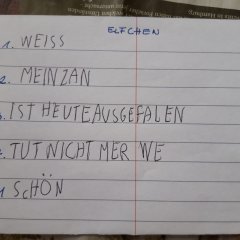 ELFCHEN
1. WEISS
2. MEINZAN
3. IST HEUTEAUSGEFALEN
4. TUT NICHT MER WE
1 SCHÖN